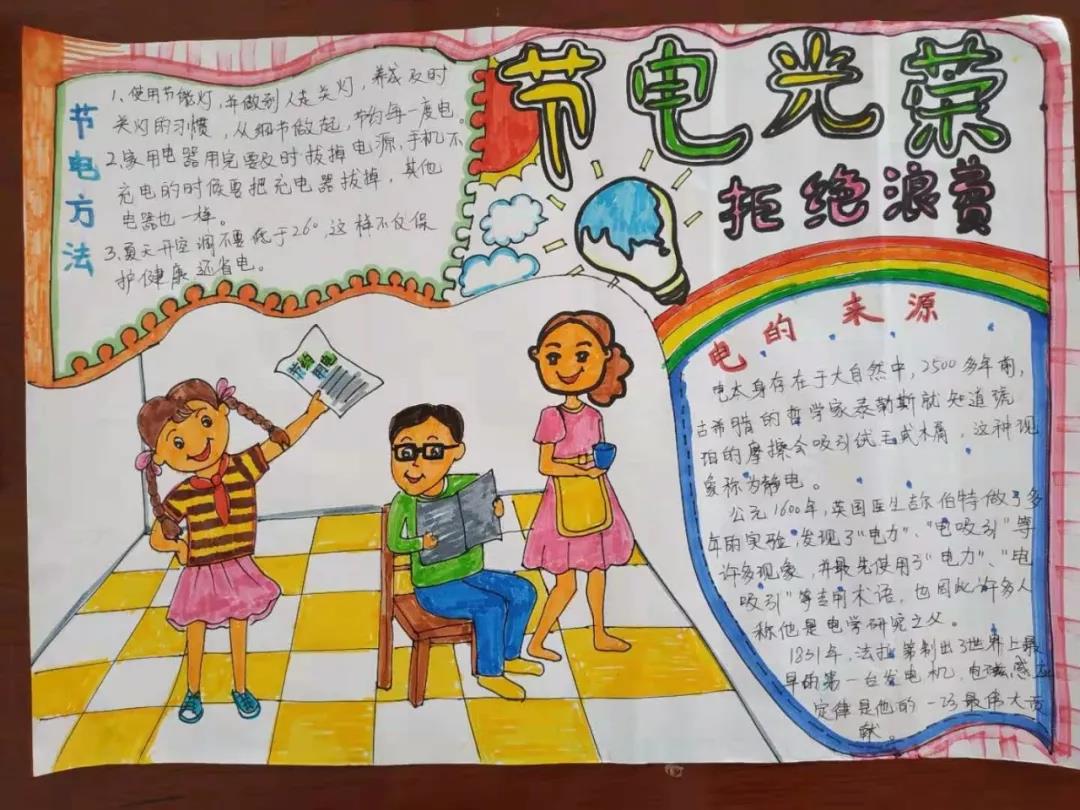 节电光荣
拒绝浪费
节电方法
1、使用节能灯，并做到人走关灯，养成及时
关灯的习惯，从细节做起，节约每一度电。
2、家用电器用完要及时拔掉电源，手机不
充电的时候要把充电器拔掉，其他
电器也一样。
3、夏天开空调不要低于26°，这样不仅保
护健康还省电。
节约
用电
电的来源
电本身存在于大自然中，2500多年前，
古希腊的哲学家泰勒斯就知道琥
珀的摩擦会吸引绒毛或木屑，这种现
象称为静电。
公元1600年，英国医生吉尔伯特做了多
年的实验，发现了“电力”、“电吸引”等
许多现象，并最先使用了“电力”、“电
吸引”等专用术语，也因此许多人
称他是电学研究之父。
1831年，法拉第制出了世界上最
早的第一台发电机，电磁感应
定律是他的一项最伟大贡
献。